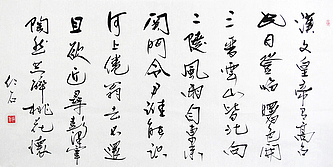 漢文皇帝有高台
此日登临曙色開
三晋雲山皆北向
二陵風雨自東来
関門令尹誰能識
河上僊翁去不還
且欲近尋彭澤宰
陶然共醉花